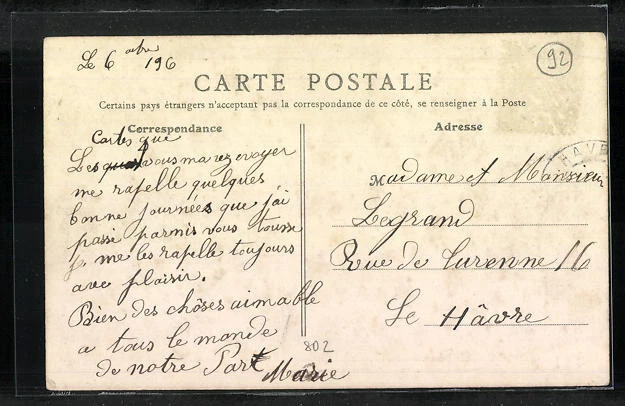 Le 6 octobre 196
92
CARTE POSTALE
Certains pays étrangers n'acceptant pas la correspondance de ce côté, se renseigner à la Poste
Correspondance
Adresse
HAVRE
Cartes que
Les vous ma rez evoyer
me rapelle quelques
bonne journées que j'ai
passé parmis vous tousse
je me les rapelle toujours
ave plaisir.
Bien des chôses aimable
a tous le monde
de notre Part
Marie
Madame et Monsieur
Legrand
Rue de Turenne 16
Le Hâvre
802